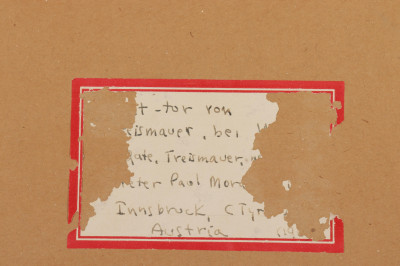 t-tor von
ismauer, bei
ate, Treismauer,
eter Paul Mor
Innsbruck, CTyr
Austria